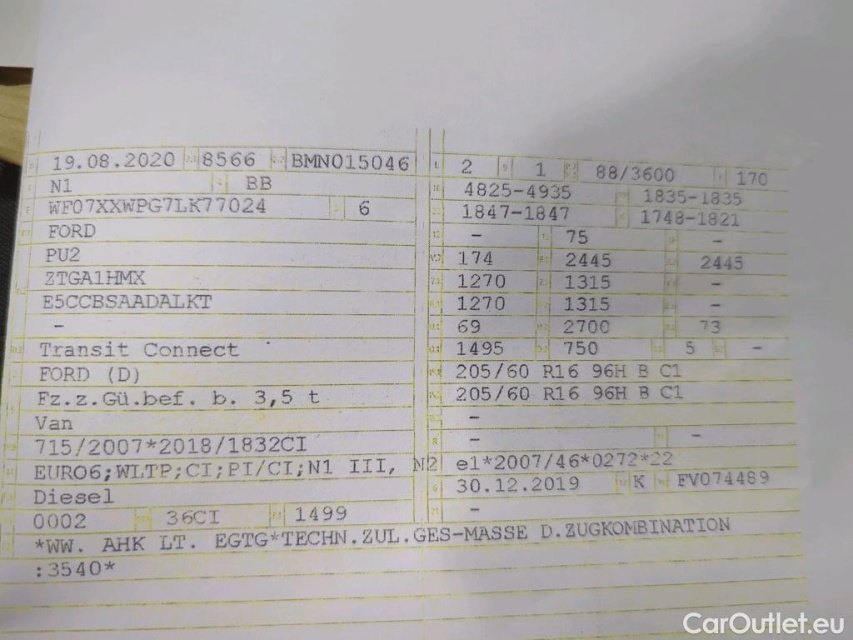 19.08.2020 8566 BMN015046
N1 BB
WF07XXWPG7LK77024 6
FORD
PU2
ZTGA1HMX
E5CCBSAADALKT
-
Transit Connect
FORD (D)
Fz.z.Gü.bef. b. 3,5 t
Van
715/2007*2018/1832CI
EURO6;WLTP;CI;PI/CI;N1 III, N2
Diesel
0002 36CI 1499
2 1 88/3600 170
4825-4935 1835-1835
1847-1847 1748-1821
- 75 -
174 2445 2445
1270 1315 -
1270 1315 -
69 2700 73
1495 750 5 -
205/60 R16 96H B C1
205/60 R16 96H B C1
-
- -
e1*2007/46*0272*22
30.12.2019 K FV074489
-
*WW. AHK LT. EGTG*TECHN.ZUL.GES-MASSE D.ZUGKOMBINATION
:3540*
CarOutlet.eu